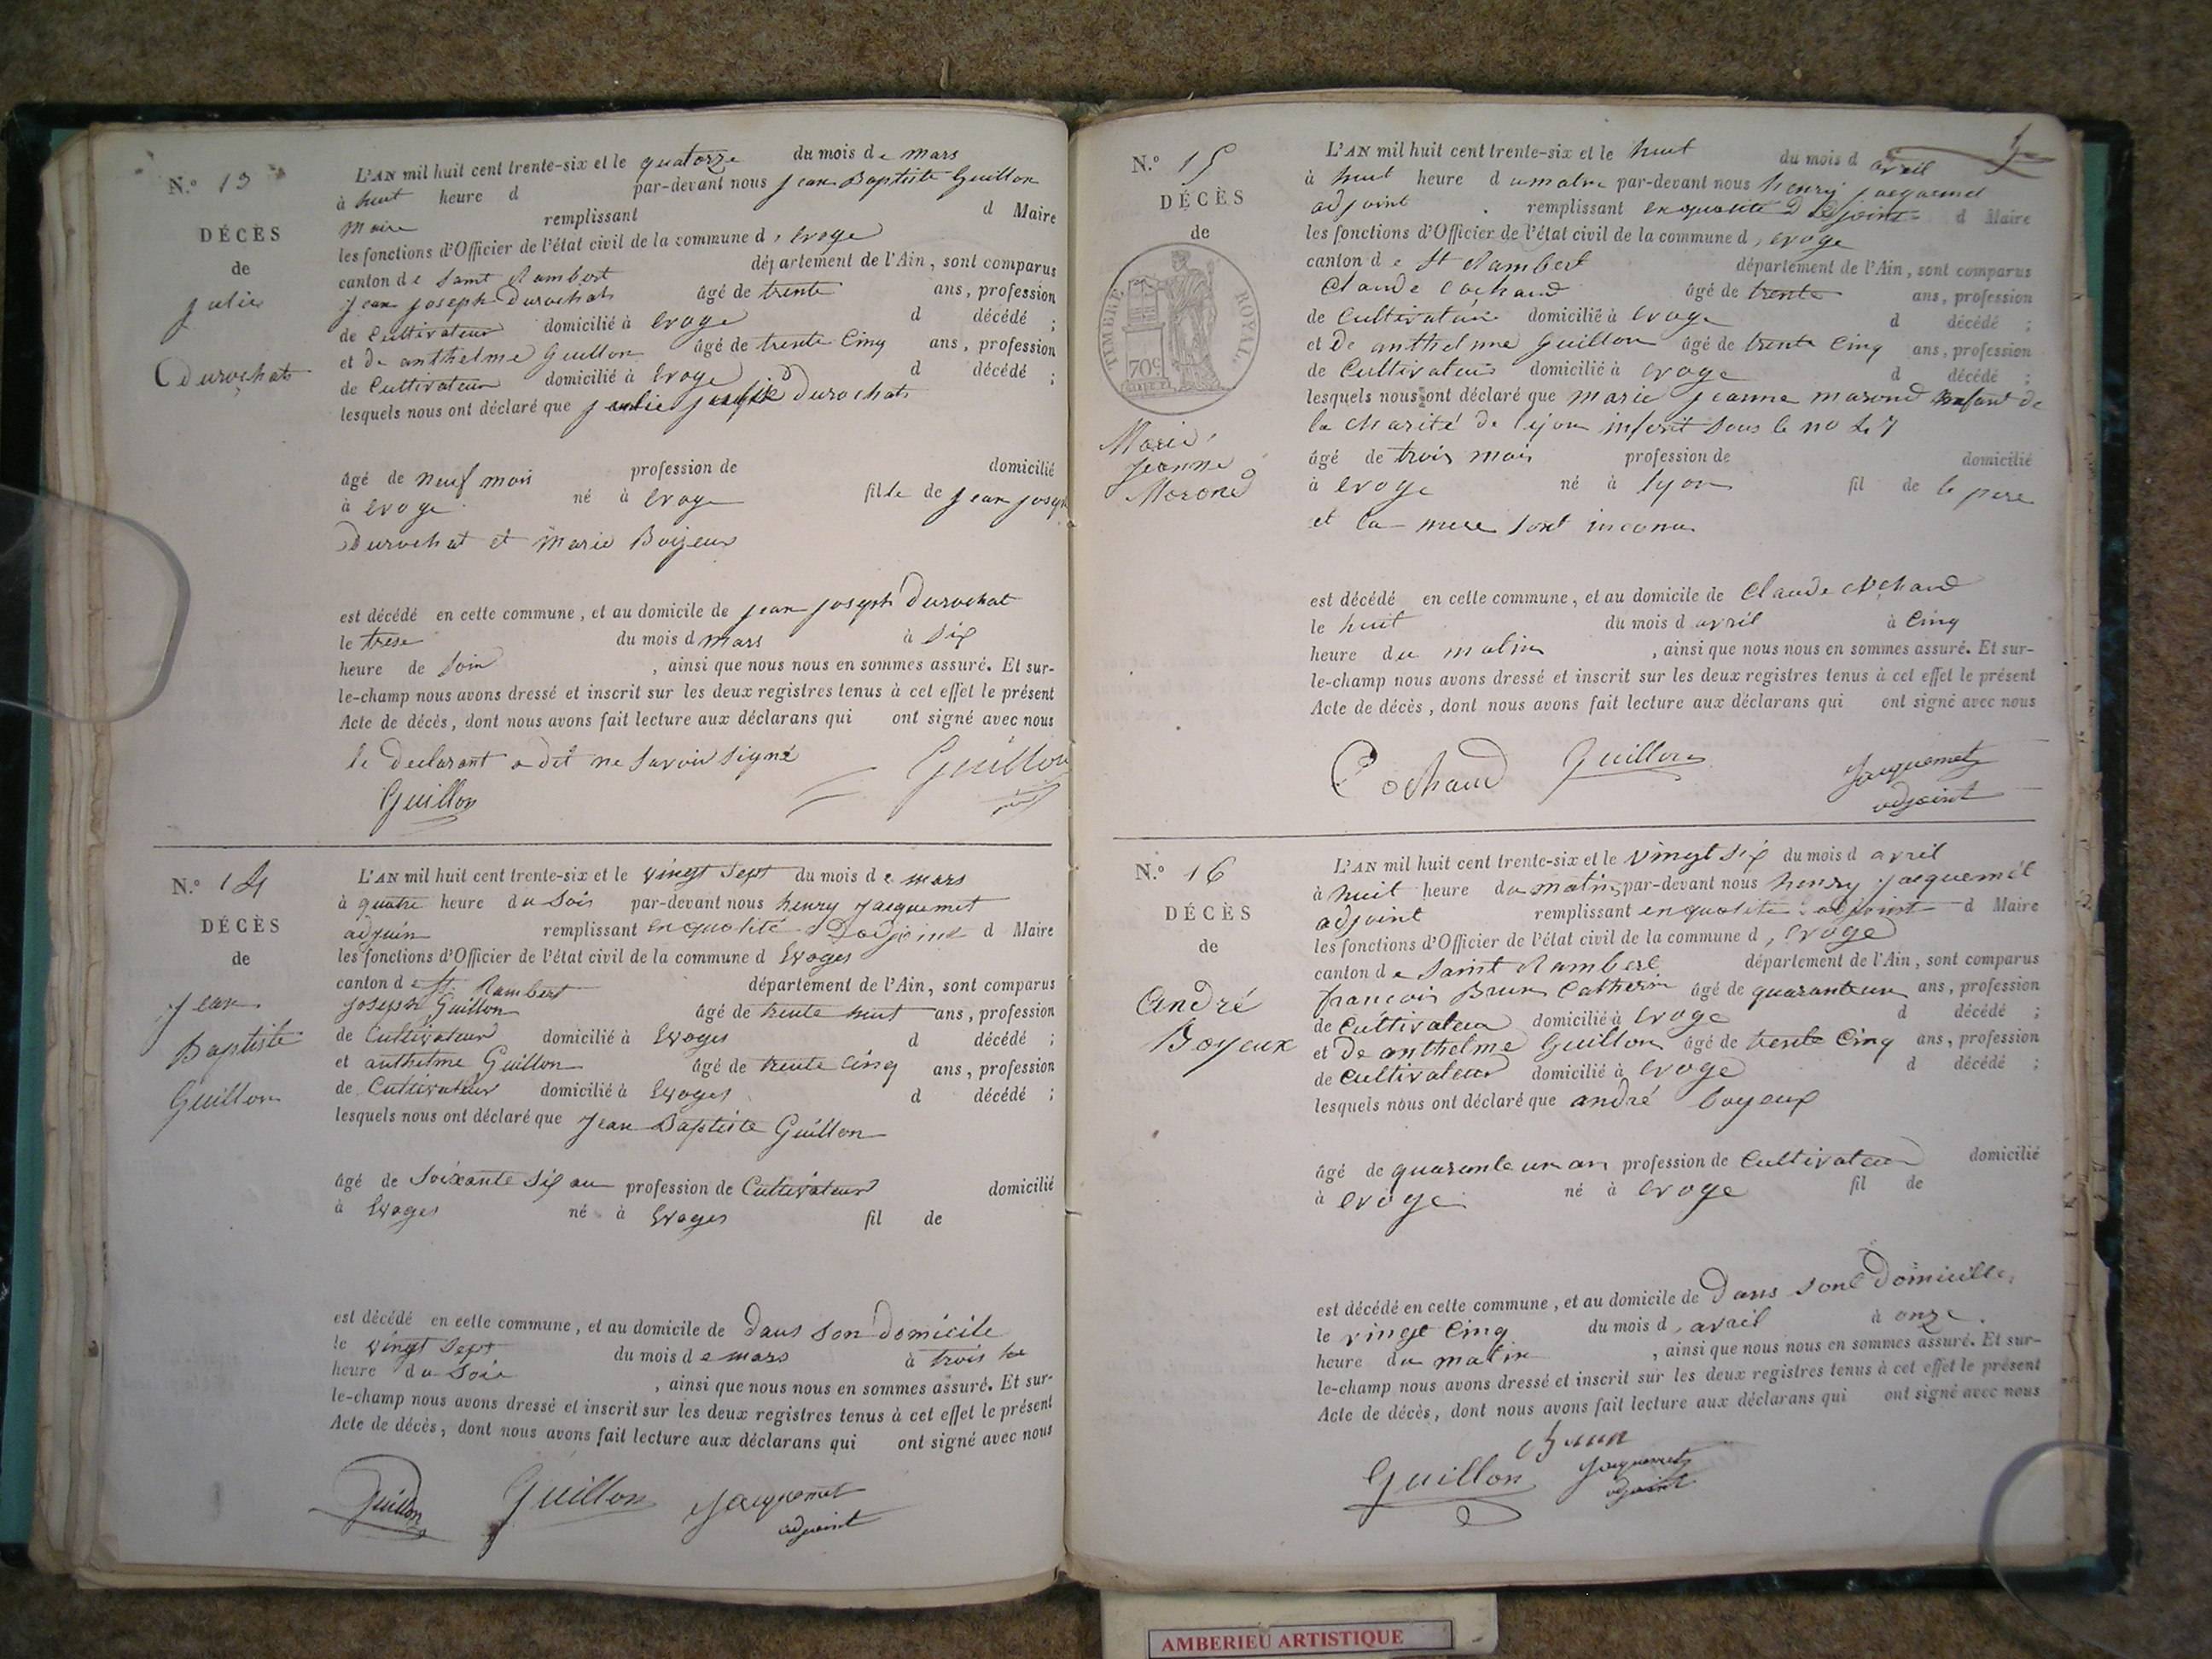 N.° 13
DÉCÈS
de
julie
Durochat
L'AN mil huit cent trente-six et le quatorze du mois de mars
à huit heure d par-devant nous jean Baptiste Guillon
maire remplissant d Maire
les fonctions d'Officier de l'état civil de la commune d, evoge
canton de Saint Rambert département de l'Ain, sont comparus
jean joseph Durochat âgé de trente ans, profession
de Cultivateur domicilié à Evoge d décédé ;
et de anthelme Guillon âgé de trente Cinq ans, profession
de Cultivateur domicilié à Evoge d décédé ;
lesquels nous ont déclaré que Durochat
âgé de neuf mois profession de domicilié
à evoge né à Evoge fille de jean joseph
Durochat et Marie Boijeux
est décédé en cette commune, et au domicile de jean joseph Durochat
le trese du mois d mars à Six
heure de Soir , ainsi que nous nous en sommes assuré. Et sur-
le-champ nous avons dressé et inscrit sur les deux registres tenus à cet effet le présent
Acte de décès, dont nous avons fait lecture aux déclarans qui ont signé avec nous
le declarant a dit ne Savoir Signé Guillon
Guillon
N.° 14
DÉCÈS
de
Jean
Baptiste
Guillon
L'AN mil huit cent trente-six et le vingt Sept du mois de mars
à quatre heure du Soir par-devant nous henry jacquemet
adjoin remplissant en qualité D'adjoint d Maire
les fonctions d'Officier de l'état civil de la commune d Evoges
canton de St Rambert département de l'Ain, sont comparus
joseph Guillon âgé de trente huit ans, profession
de Cultivateur domicilié à Evoges d décédé ;
et anthelme Guillon âgé de trente Cinq ans, profession
de Cultivateur domicilié à Evoges d décédé ;
lesquels nous ont déclaré que Jean Baptiste Guillon
âgé de Soixante Six an profession de Cultivateur domicilié
à Evoges né à Evoges fil de
est décédé en cette commune, et au domicile de Dans Son Domicile
le vingt Sept du mois de mars à trois
heure du Soir , ainsi que nous nous en sommes assuré. Et sur-
le-champ nous avons dressé et inscrit sur les deux registres tenus à cet effet le présent
Acte de décès, dont nous avons fait lecture aux déclarans qui ont signé avec nous
Guillon Guillon Jacquemet
adjoint
N.° 15
DÉCÈS
de
TIMBRE ROYAL
Marie
Jeanne
Marond
L'AN mil huit cent trente-six et le huit du mois d avril
à huit heure d umatin par-devant nous henry jacquemet
adjoint remplissant enqualité D adjoint d Maire
les fonctions d'Officier de l'état civil de la commune d, evoge
canton de St Rambert département de l'Ain, sont comparus
Claude Cochaud âgé de trente ans, profession
de Cultivateur domicilié à Evoge d décédé ;
et De anthelme Guillon âgé de trente Cinq ans, profession
de Cultivateur domicilié à evoge d décédé ;
lesquels nous ont déclaré que marie jeanne marond enfant de
la charité de lyon inscrit Sous le no
âgé de trois mois profession de domicilié
à evoge né à lyon fil de le pere
et la mere Sont inconnu
est décédé en cette commune, et au domicile de Claude Cochaud
le huit du mois d avril à Cinq
heure du matin , ainsi que nous nous en sommes assuré. Et sur-
le-champ nous avons dressé et inscrit sur les deux registres tenus à cet effet le présent
Acte de décès, dont nous avons fait lecture aux déclarans qui ont signé avec nous
Cochaud Guillon Jacquemet
adjoint
N.° 16
DÉCÈS
de
André
Boyeux
L'AN mil huit cent trente-six et le vingt Six du mois d avril
à huit heure du matin par-devant nous henry jacquemét
adjoint remplissant enqualité adjoint d Maire
les fonctions d'Officier de l'état civil de la commune d, evoge
canton de Saint Rambert département de l'Ain, sont comparus
francois Brun Catherin âgé de quaranteun ans, profession
de Cultivateur domicilié à evoge d décédé ;
et De anthelme Guillon âgé de trente Cinq ans, profession
de Cultivateur domicilié à evoge d décédé ;
lesquels nous ont déclaré que andré boyeux
âgé de quarante un an profession de Cultivateur domicilié
à evoge né à evoge fil de
est décédé en cette commune, et au domicile de Dans Sont Domicille
le vingt Cinq du mois d, avril à onze
heure du matin , ainsi que nous nous en sommes assuré. Et sur-
le-champ nous avons dressé et inscrit sur les deux registres tenus à cet effet le présent
Acte de décès, dont nous avons fait lecture aux déclarans qui ont signé avec nous
Brun
Guillon Jacquemet
adjoint
AMBERIEU ARTISTIQUE